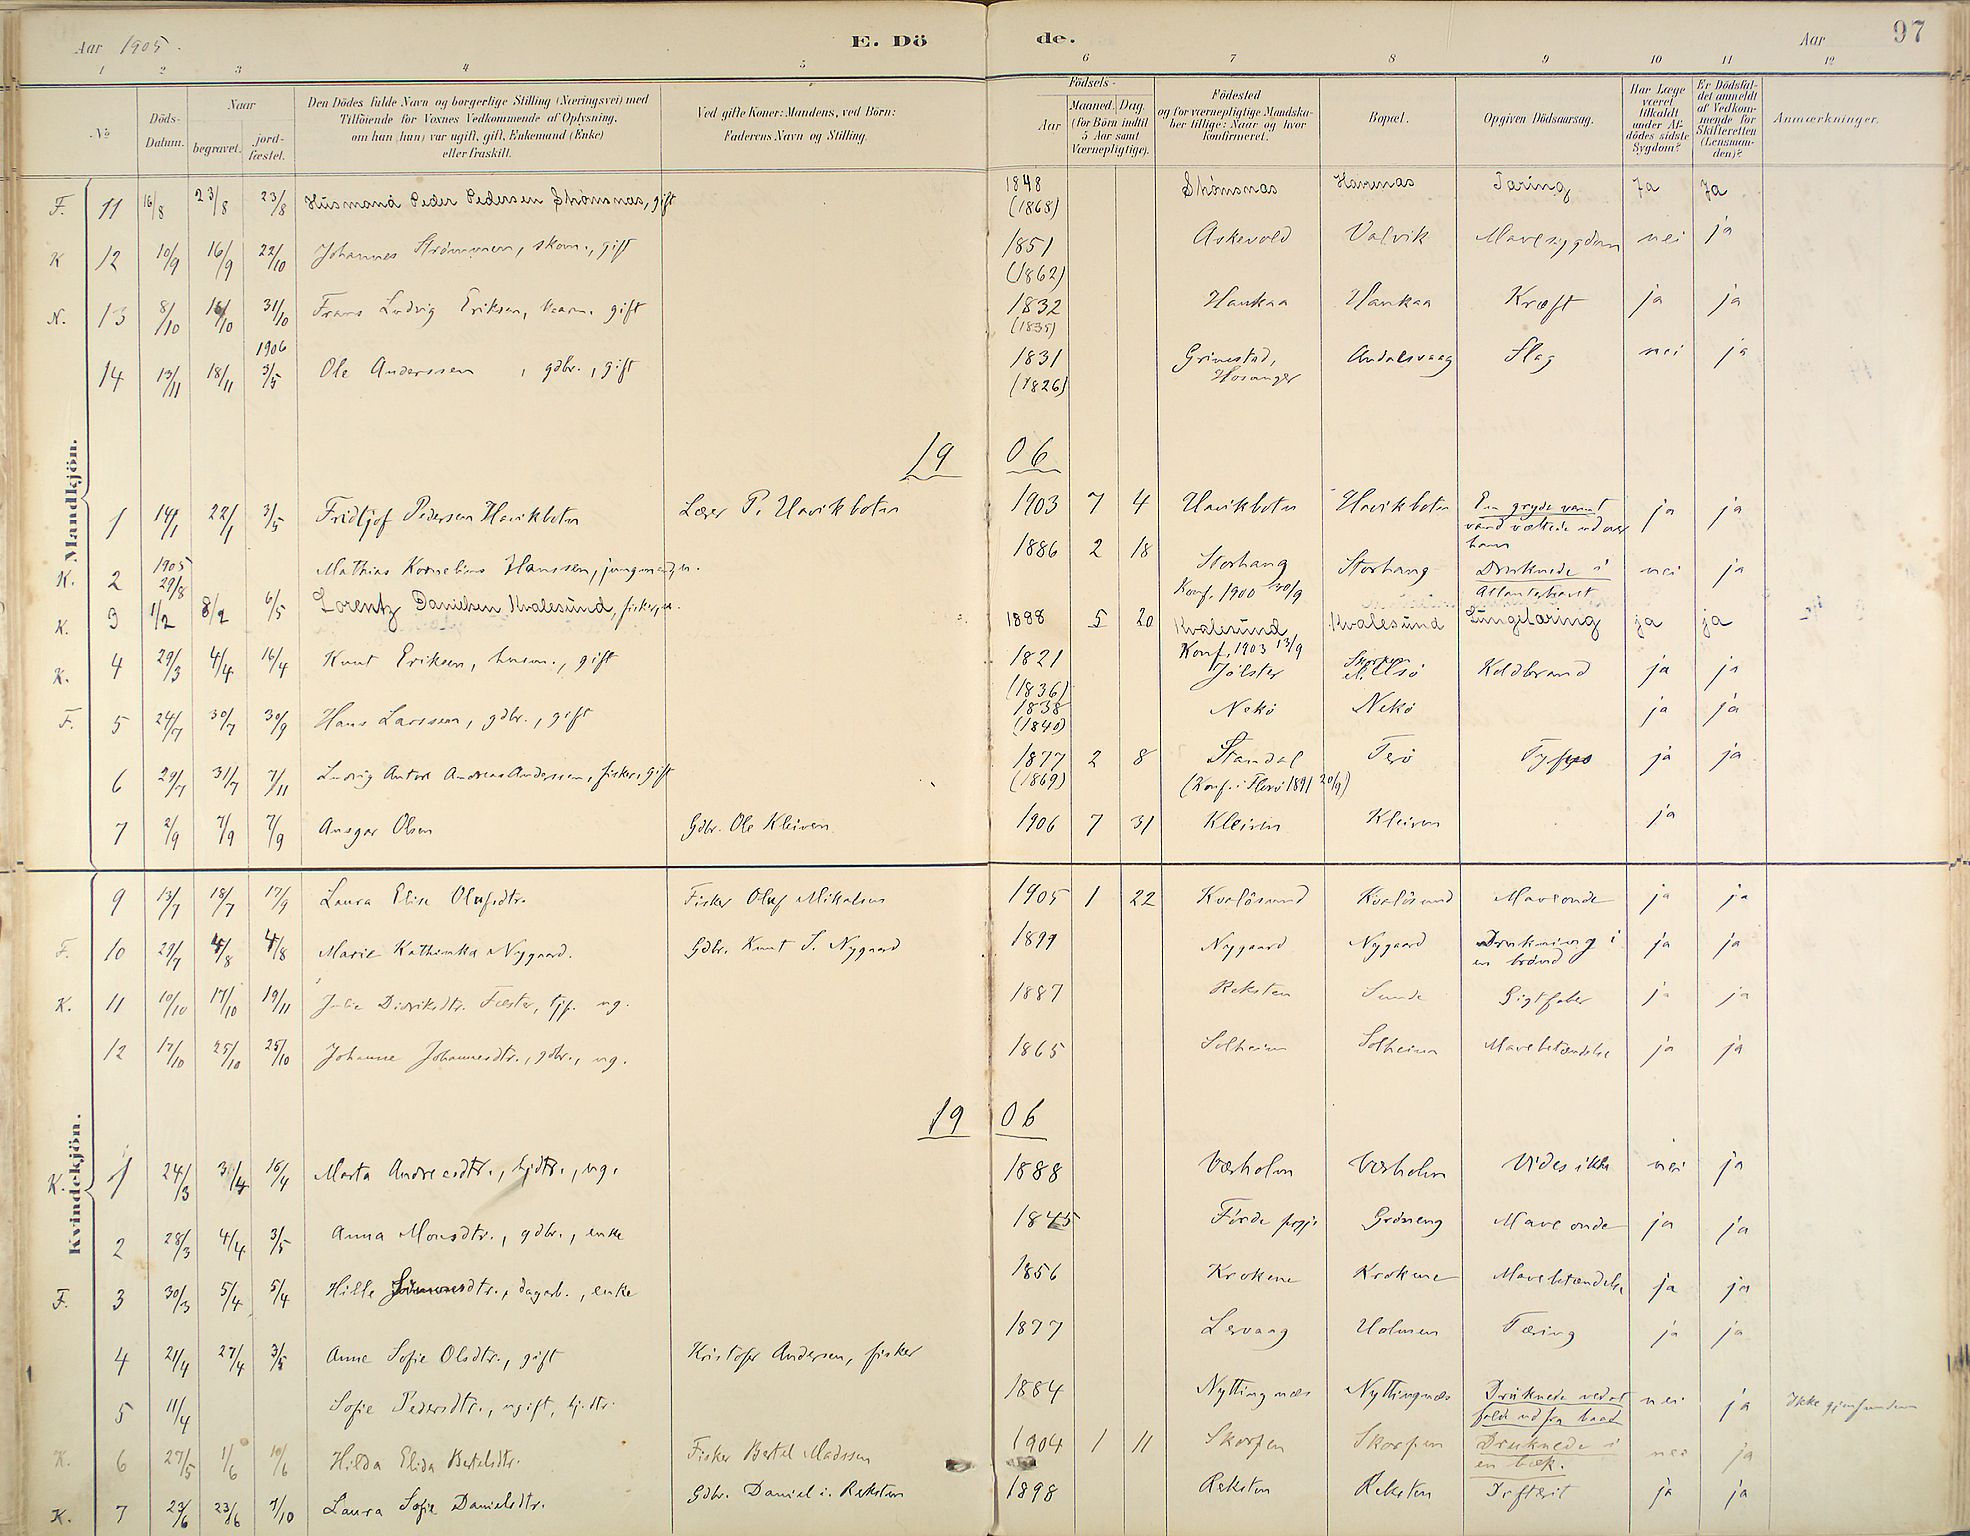 Aar 1905. E. Dö de. Aar 97
1 2 3 4 5 6 7 8 9 10 11 12
No
Döds-Datum.
Naar
begravet.
jord-fæstet.
Den Dödes fulde Navn og borgerlige Stilling (Næringsvei) med
Tilföiende for Voxnes Vedkommende af Oplysning,
om han (hun) var ugift, gift, Enkemand (Enke)
eller fraskilt.
Ved gifte Koner: Mandens, ved Börn:
Faderens Navn og Stilling.
Födsels-
Aar
Maaned. Dag.
(for Börn indtil
5 Aar samt
Værnepligtige).
Födested
og for værnepligtige Mandska-
ber tillige: Naar og hvor
konfirmeret.
Bopæl.
Opgiven Dödsaarsag.
Har Læge
været
tilkaldt
under Af-
dödes sidste
Sygdom?
Er Dödsfal-
det anmeldt
af Vedkom-
mende for
Skifteretten
(Lensman-
den)?
Anmærkninger.
Mandkjön.
F. 11 16/8 23/8 23/8 Husmand Peder Pedersen Skönsnas, gift 1848 (1868) Skönsnas Havrnas Taring Ja Ja
K 12 10/9 16/9 22/10 Johannes Strömmen, skom., gift 1851 (1862) Askevold Valvik Mavesygdom nei ja
N. 13 8/10 16/10 31/10 Frans Ludvig Eriksen, kaarm. gift 1832 (1835) Haukaa Haukaa Kræft ja ja
14 13/11 18/11 1906 3/5 Ole Anderssen, gdbr., gift 1831 (1826) Grimestad, Hosanger Andalsvaag Slag nei ja
1906
1 14/1 22/1 3/5 Fridtjof Pedersen Havikbotn Lærer P. Havikbotn 1903 7 4 Havikbotn Havikbotn En gryde varmt
vand væltede ud over
ham ja ja
K. 2 1905 29/8 Mathias Kornelius Hanssen, jungmand, u. 1886 2 18 Storhaug
Konf. 1900 30/9 Storhaug Druknede i
Atlanterhavet nei ja
K. 3 1/2 8/2 6/5 Lorentz Danielsen Kvalesund, fisker, u. 1888 5 20 Kvalesund
Konf. 1903 13/9 Kvalesund Lungetæring ja ja
K. 4 29/3 4/4 16/4 Knut Eriksen, husm., gift 1821 (1836) Jölster Koldbrand ja ja
F. 5 24/7 30/7 30/9 Hans Larssen, gdbr., gift 1838 (1840) Nekö Nekö ja ja
6 29/7 31/7 7/11 Ludvig Anton Andreas Anderssen, fisker, gift 1877 (1869) 2 8 Standal
(Konf. i Florö 1891 20/9) Terö Tyfus ja ja
7 2/9 7/9 7/9 Ansgar Olsen Gdbr. Ole Kleiven 1906 7 31 Kleiven Kleiven ja
Kvindekjön.
9 13/7 18/7 17/9 Laura Elise Olufsdtr. Fisker Oluf Mikalsen 1905 1 22 Kvalösund Kvalösund Maveonde ja ja
F. 10 29/7 4/8 4/8 Marie Kathinka Nygaard. Gdbr. Knut S. Nygaard 1899 Nygaard Nygaard Drukning i
en brönd ja ja
K. 11 10/10 17/10 19/11 Julie Didriksdtr. Fæster, tjp. ug. 1887 Reksten Sunde Gigtfeber ja ja
12 17/10 25/10 25/10 Johanne Johannesdtr., gdbr., ug. 1865 Solheim Solheim Mavebetændelse ja ja
1906
K. 1 24/3 3/4 16/4 Marta Andreasdtr., hjdtr., ug. 1888 Værholm Værholm Vides ikke nei ja
2 28/3 4/4 3/5 Anna Monsdtr., gdbr., enke 1845 Förde prgj. Gröneng Maveonde ja ja
F. 3 30/3 5/4 5/4 Hille Simonsdtr., dagarb., enke 1856 Krokene Krokene Mavebetændelse ja ja
4 21/4 27/4 3/5 Anne Sofie Olsdtr., gift Kristofer Andersen, fisker 1877 Lervaag Holmen Tæring ja ja
5 11/4 Sofie Pedersdtr., ugift, hj.dtr. 1884 Nyttingnæs Nyttingnæs Druknede ved at
falde ud fra baad nei ja Ikke gjenfunden
K. 6 27/5 1/6 10/6 Hilda Elida Bertelsdtr. Fisker Bertel Madssen 1904 1 11 Skorpen Skorpen Druknede i
en bæk. nei ja
K. 7 23/6 23/6 7/10 Laura Sofie Danielsdtr. Gdbr. Daniel i. Reksten 1898 Reksten Reksten Difterit ja ja